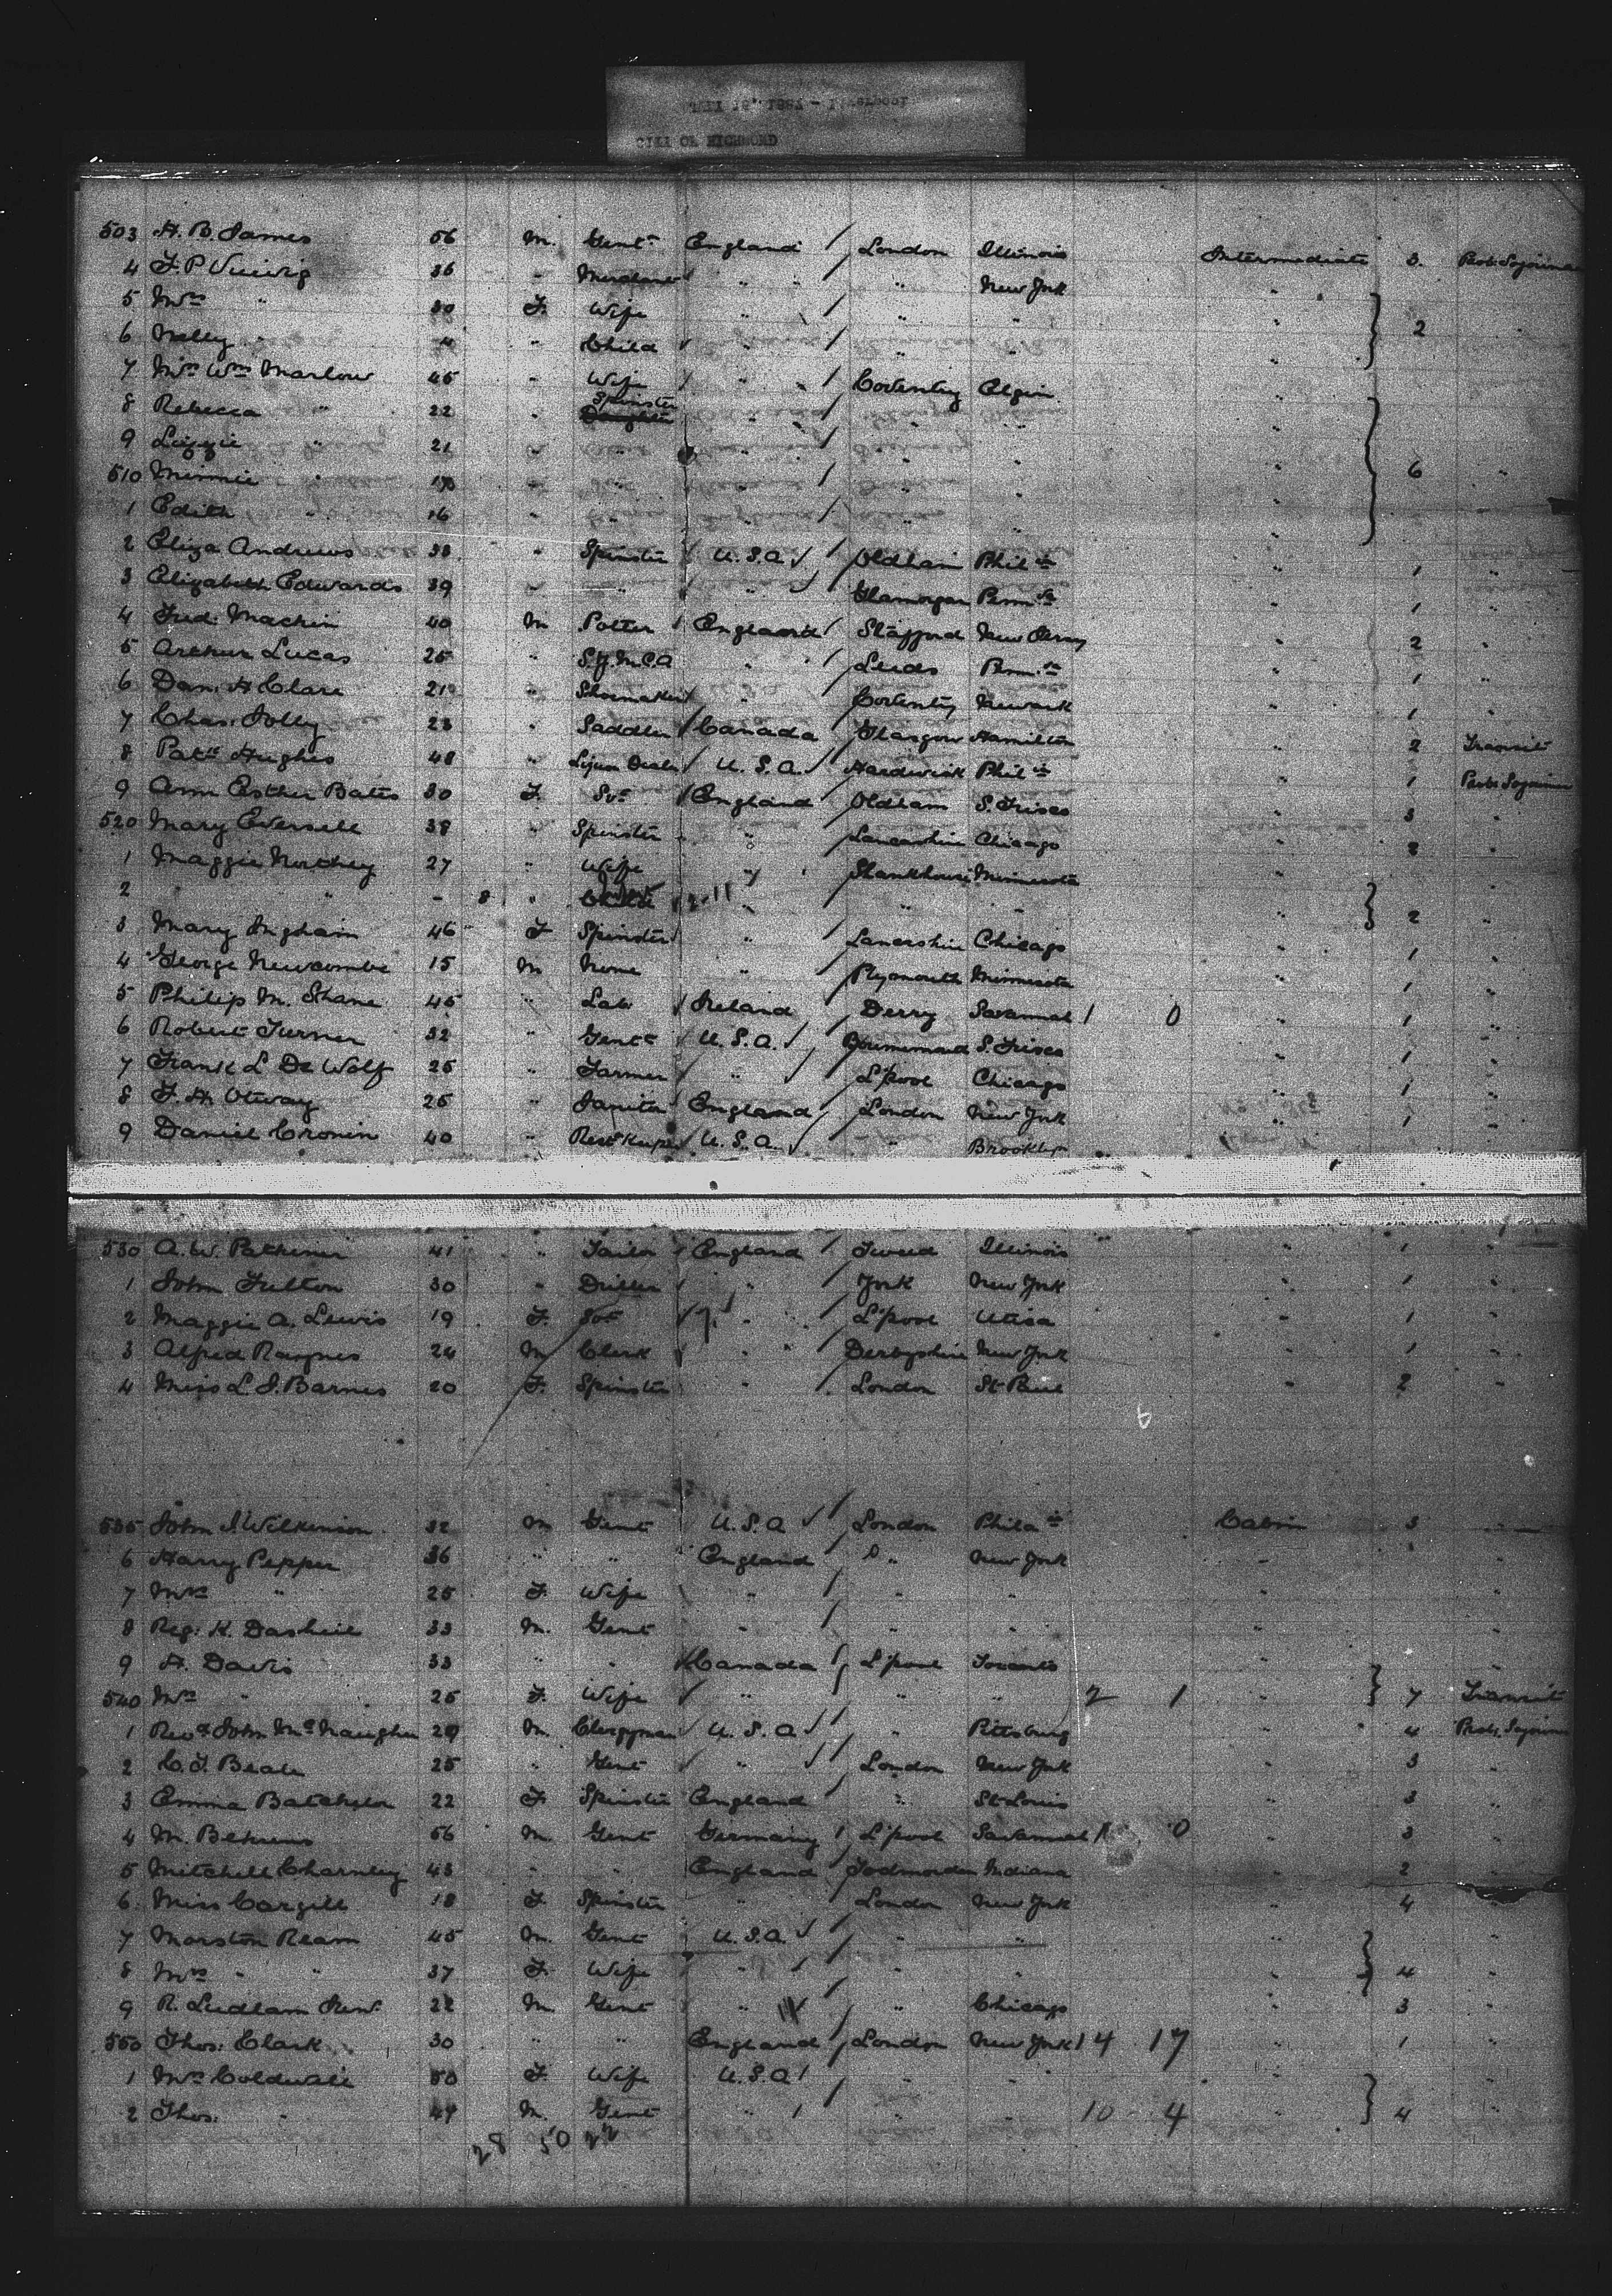 CITY OF RICHMOND
503 H. B. James 56 M. Gent. England London Illinois Intermediate 3.
4 36 " Merchant " " New York "
5 Mrs " 30 F. Wife " " " " 2 "
6 Nelly " " Child " " " "
7 Mrs Wm Marlow 45 " Wife " Coventry Elgin "
8 Rebecca " 22 " Spinster " " " "
9 Lizzie " 21 " " " " " " 6 "
510 Minnie " " " " " " "
1 Edith " 16 " " " " " "
2 Eliza Andrews 38 " Spinster U.S.A. Oldham Phila " 1 "
3 Elizabeth Edwards 39 " " " Glamorgan Penn. " 1 "
4 Fred. Machin 40 M Potter England Stafford New Jersey " 2 "
5 Arthur Lucas 25 " S.Y.M.C.A " Leeds Penn. " 1 "
6 Dan. H Clare 21 " Shoemaker " Coventry Newark " 1 "
7 Chas. Jolly 23 " Saddler Canada Glasgow Hamilton " 2 Transit
8 Patk Hughes 48 " U.S.A. Hardwick Phila " 1
9 Ann Esther Bates 30 F. Svt England Oldham S. Frisco 3 "
520 Mary Eversell 38 " Spinster " Lancashire Chicago 2 "
1 Maggie Northey 27 " Wife " Minnesota
2 " " - 8 " " " " " 2 "
3 Mary Ingham 46 F Spinster " Lancashire Chicago " 1 "
4 George Newcombe 15 M None " Plymouth Minnesota " 1 "
5 Philip M. Shane 45 " Lab Ireland Derry Savannah 1 0 " 1 "
6 Robert Turner 32 " Gent. U.S.A. S. Frisco " 1 "
7 Frank L De Wolf 25 " Farmer " L'pool Chicago " 1 "
8 F. H. Otway 25 " Janitor England London New York " 1 "
9 Daniel Cronin 40 " Rest Keeper U.S.A. " Brooklyn
530 A. W. 41 " Tailor England Tweed Illinois " 1 "
1 John Fulton 30 " Driller " York New York " 1 "
2 Maggie A. Lewis 19 F. Svt " L'pool Utica " 1 "
3 Alfred Raynes 24 M Clerk " Derbyshire New York " 1 "
4 Miss L. J. Barnes 20 F. Spinster " London St Paul " 2 "
6
535 John J. Wilkinson 32 M Gent U.S.A London Phila Cabin 3 "
6 Harry Pepper 36 " " England " New York " "
7 Mrs " 25 F. Wife " " " " "
8 Reg. K. Dashiel 33 M. Gent " " " " "
9 H. Davis 33 " " Canada L'pool Toronto " "
540 Mrs " 25 F. Wife " " " 2 1 " 7 Transit
1 Revd John McNaugher 29 M. Clergyman U.S.A " Pittsburg " 4
2 C. T. Beale 25 " Gent " London New York " 3 "
3 Emma Batchelor 22 F. Spinster England " St Louis " 3 "
4 M. Behrens 56 M. Gent Germany L'pool Savannah 1 0 " 3 "
5 Mitchell Charnley 43 " " England Todmorden Indiana " 2 "
6 Miss Cargill 18 F. Spinster " London New York " 4 "
7 Marston Ream 45 M. Gent U.S.A. " " " "
8 Mrs " " 37 F. Wife " " " " 4 "
9 R. Ludlam 22 M. Gent " " Chicago " 3 "
550 Thos. Clark 30 " " England London New York 14 17 " 1 "
1 Mrs Coldwell 50 F. Wife U.S.A " " " "
2 Thos. " 49 M. Gent " " " 10 4 " 4 "
28 50 22